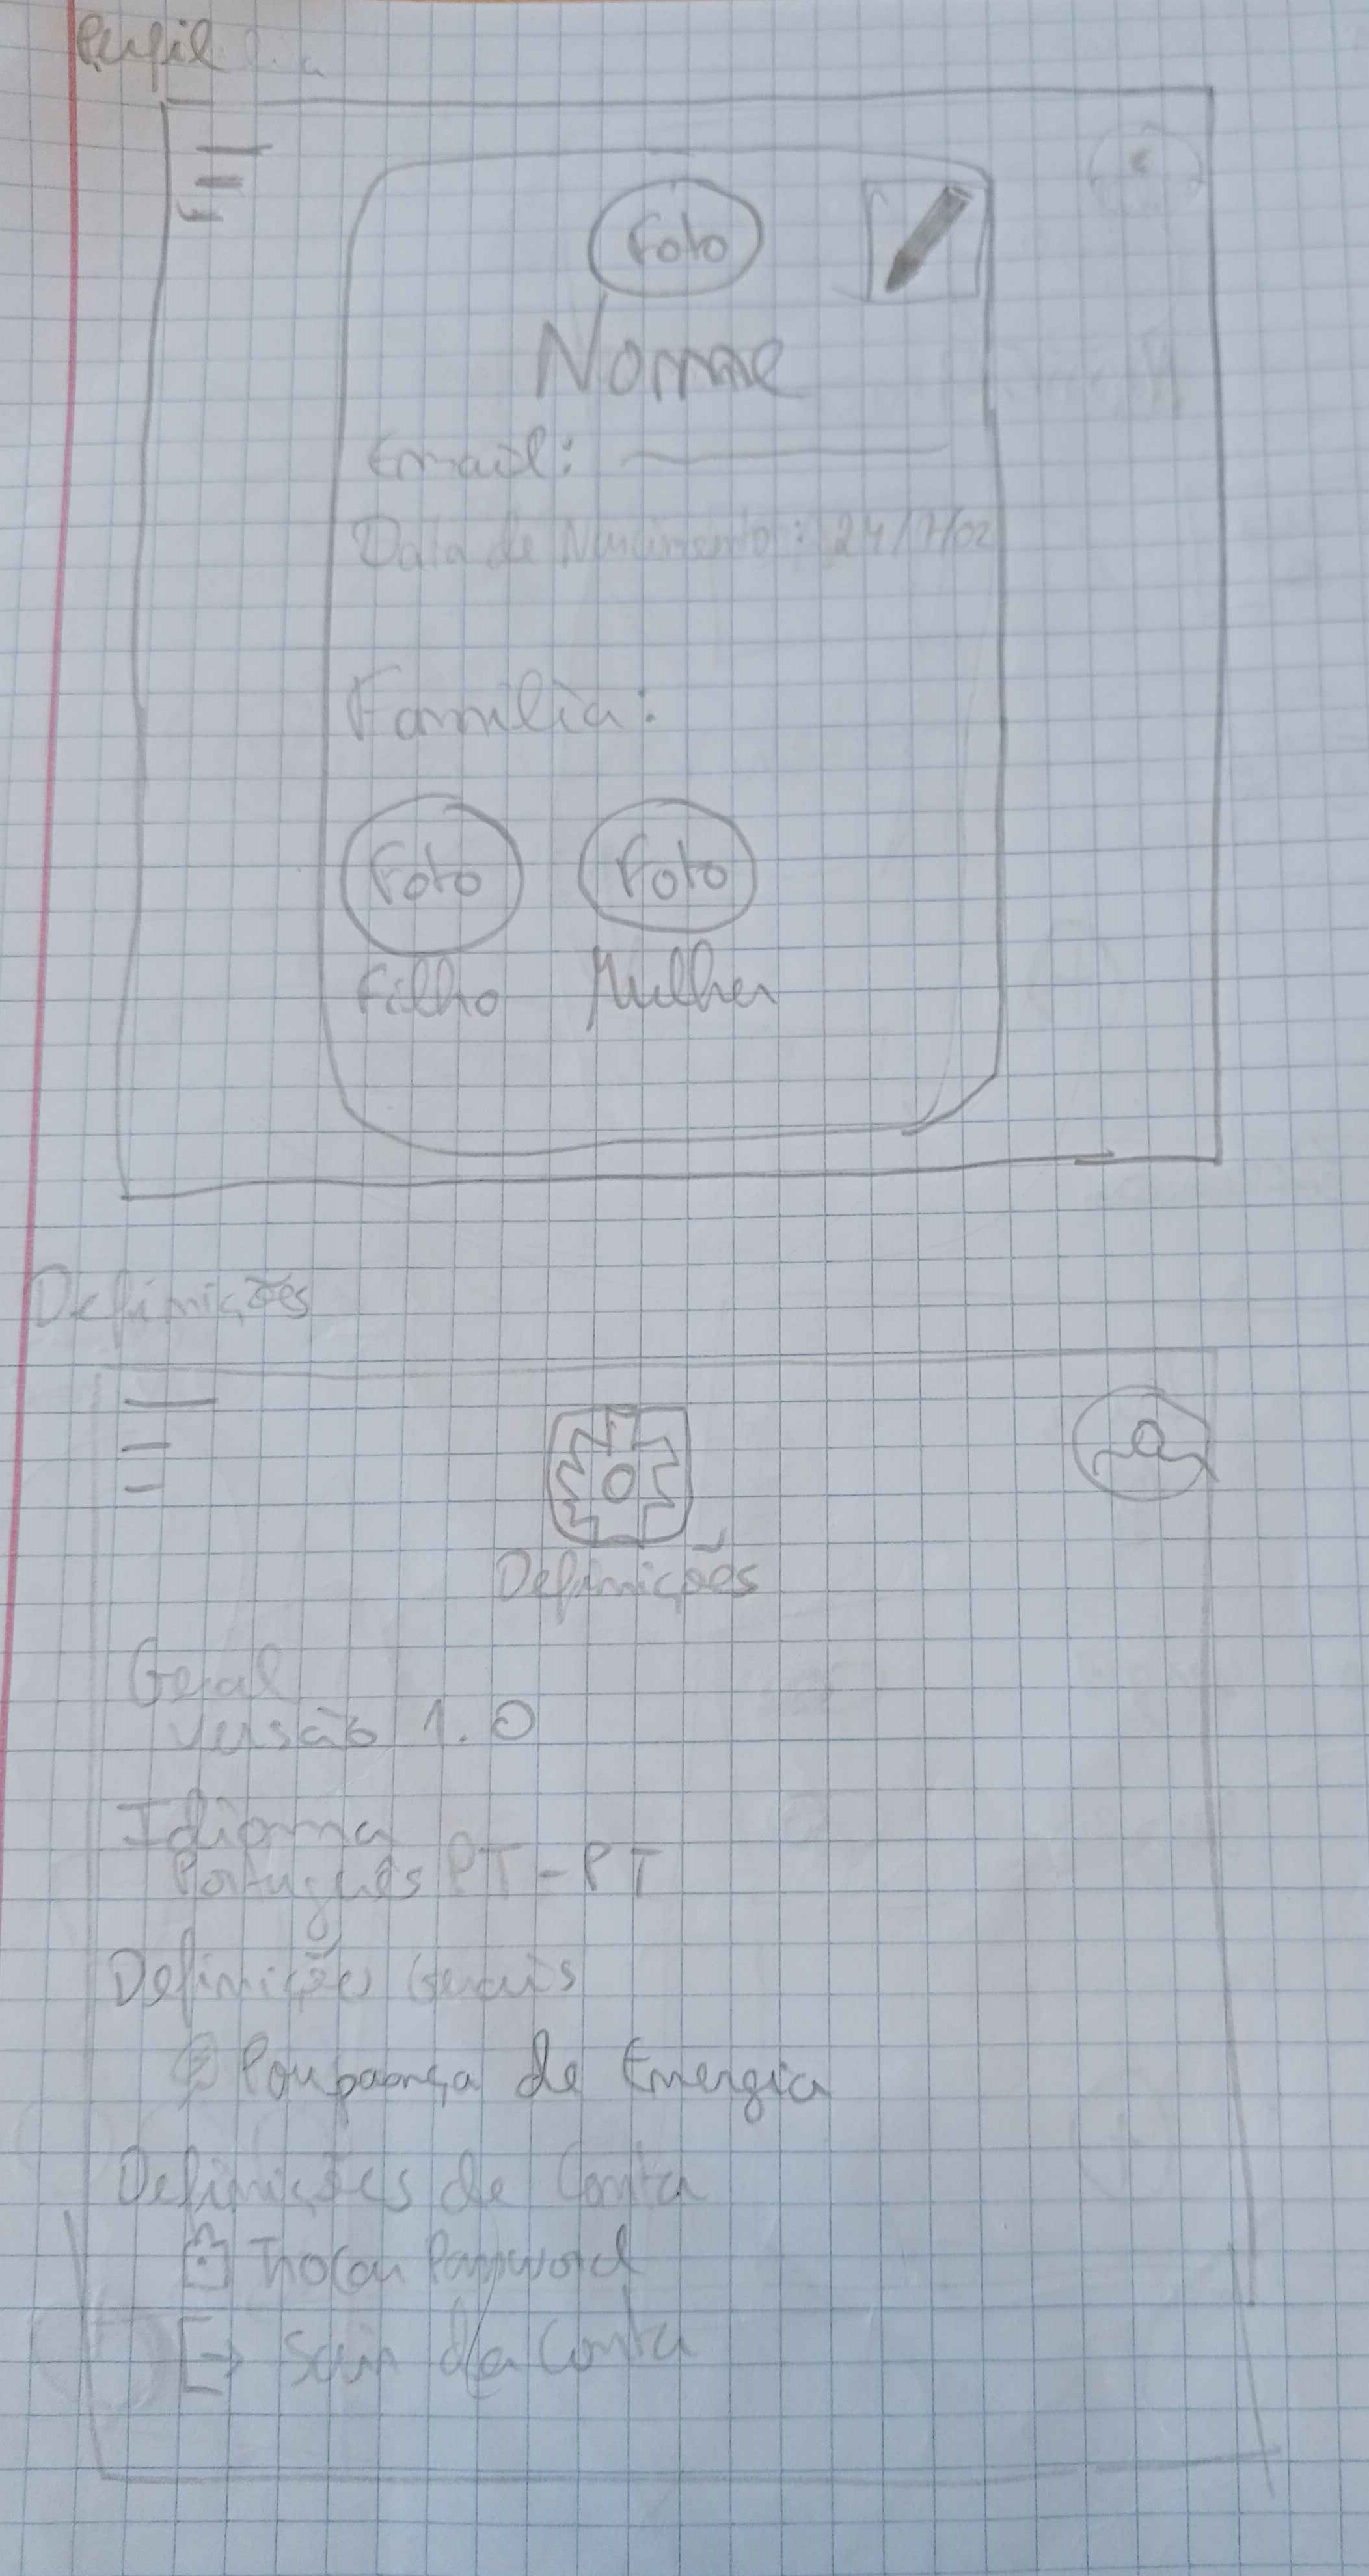 Perfil
Foto
Nome
Email:
Data de Nascimento: 24/7/02
Familia:
Foto Foto
Filho Mulher
Definições
Definições
Geral
Versão 1.0
Idioma
Português PT-PT
Definições Gerais
Poupança de Energia
Definições de Conta
Trocar Password
Sair da Conta